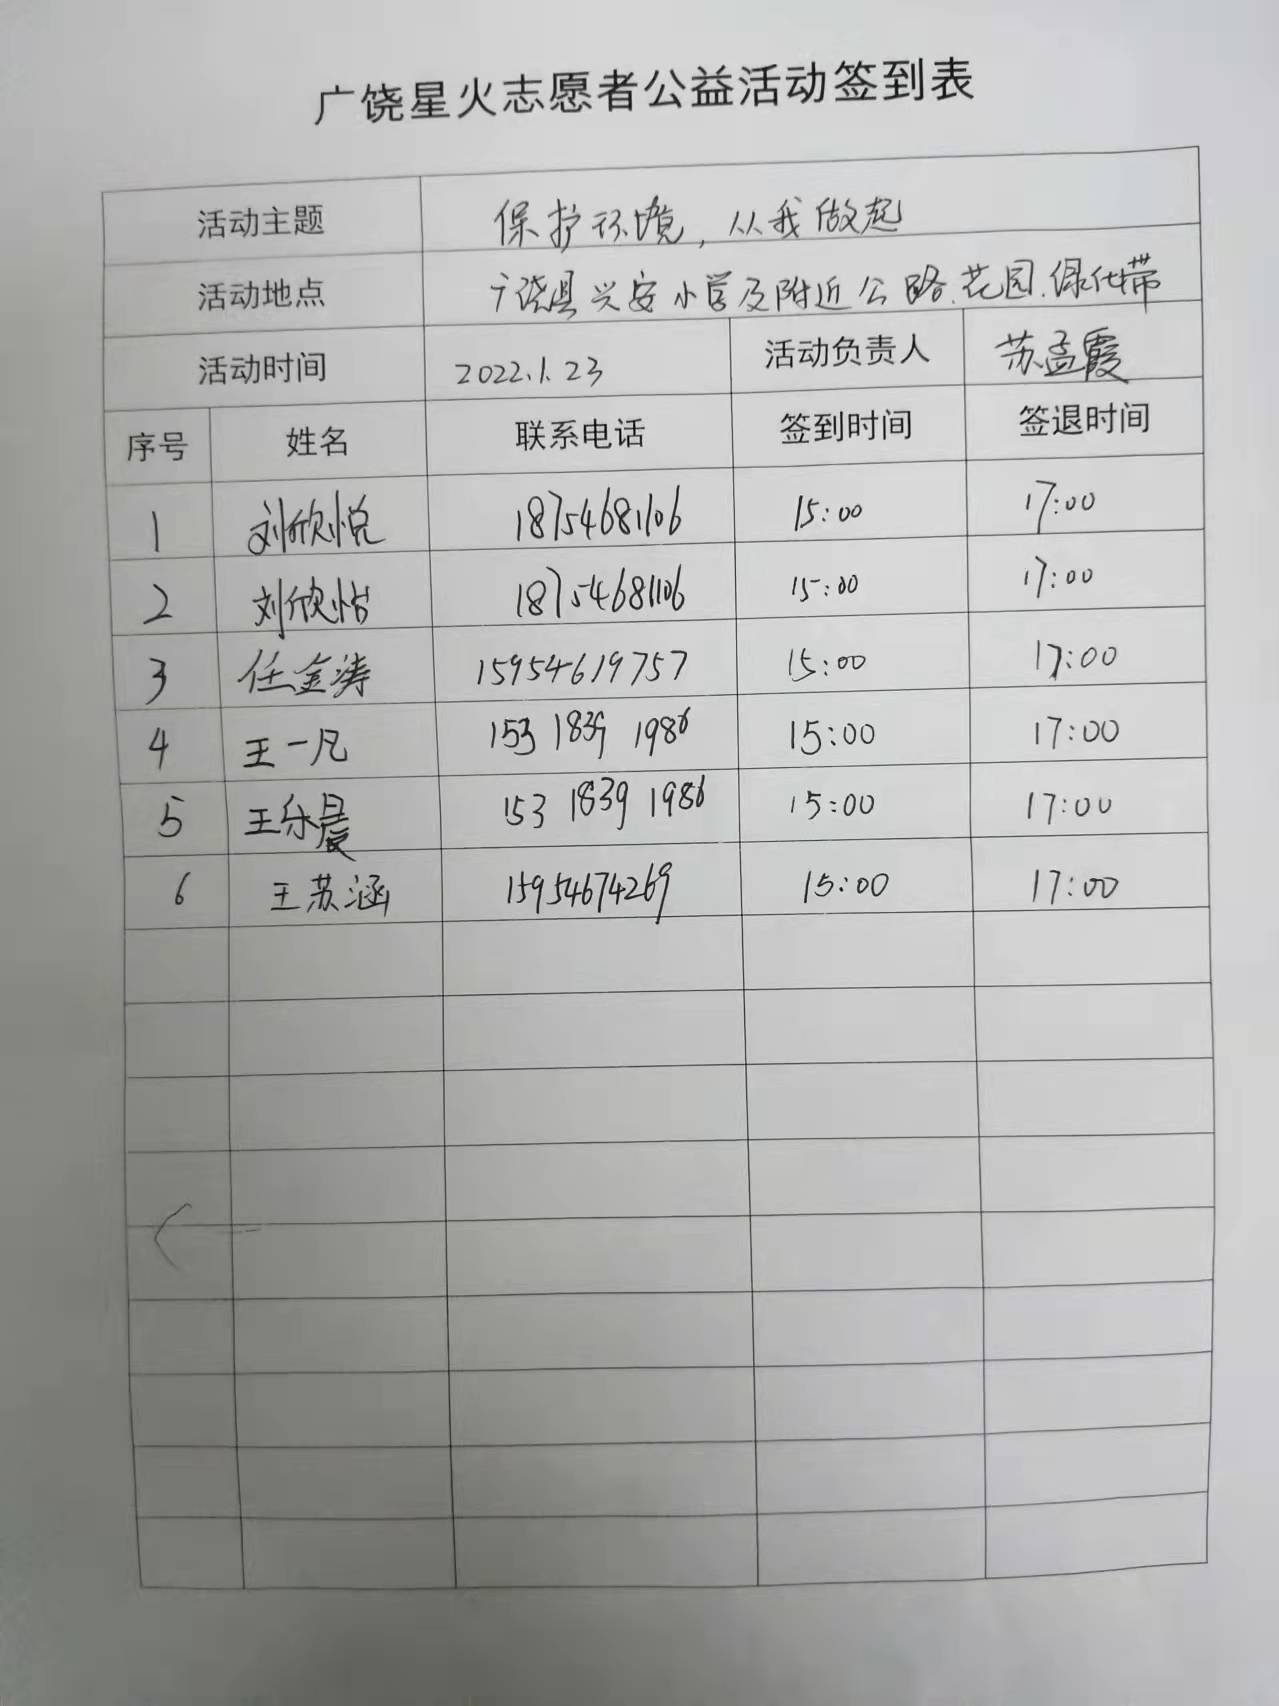 广饶星火志愿者公益活动签到表
活动主题 保护环境，从我做起
活动地点 广饶县兴安小学及附近公路、花园、绿化带
活动时间 2022.1.23 活动负责人 苏孟霞
序号 姓名 联系电话 签到时间 签退时间
1 刘欣悦 18754681106 15:00 17:00
2 刘欣怡 18754681106 15:00 17:00
3 任金涛 15954619757 15:00 17:00
4 王一凡 153 1839 1986 15:00 17:00
5 王乐晨 153 1839 1986 15:00 17:00
6 王苏涵 15954674269 15:00 17:00